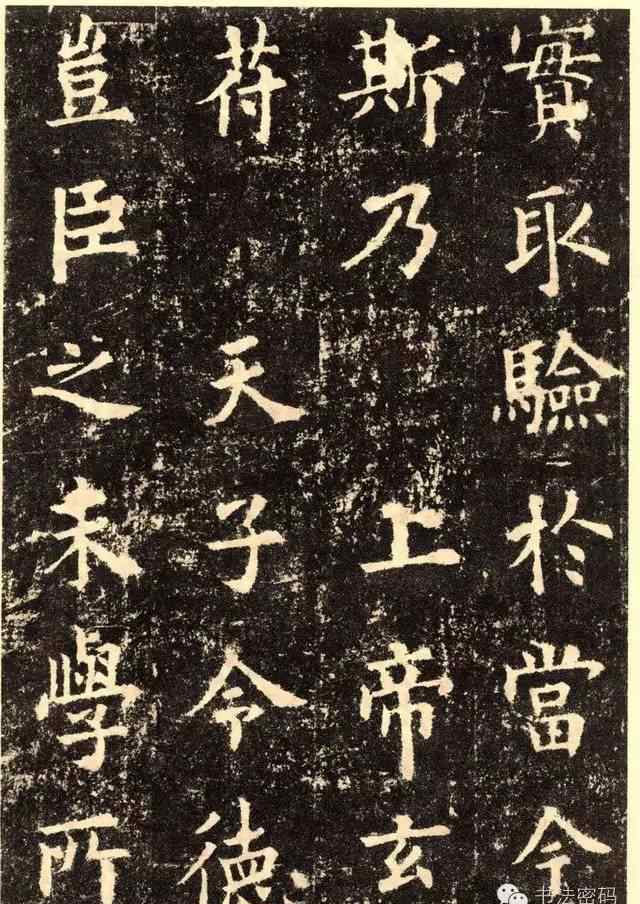 實取驗於當今
斯乃上帝玄
苻天子令德
豈臣之末學所
书法密码